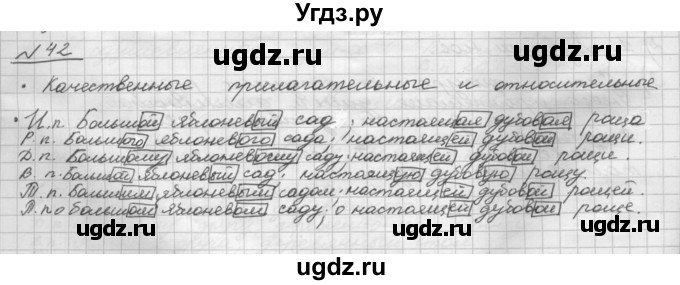 Угдз.ру
№42
ugdz.ru ugdz.ru
• Качественные прилагательные и относительные
• И.п. Большой яблоневый сад, настоящая дубовая роща
Р.п. Большого яблоневого сада, настоящей дубовой рощи.
Д.п. Большому яблоневому саду, настоящей дубовой роще.
В.п. Большой яблоневый сад, настоящую дубовую рощу.
Т.п. Большим яблоневым садом, настоящей дубовой рощей.
П.п о большом яблоневом саду, о настоящей дубовой роще.
ugdz.ru ugdz.ru ugdz.ru
ugdz.ru